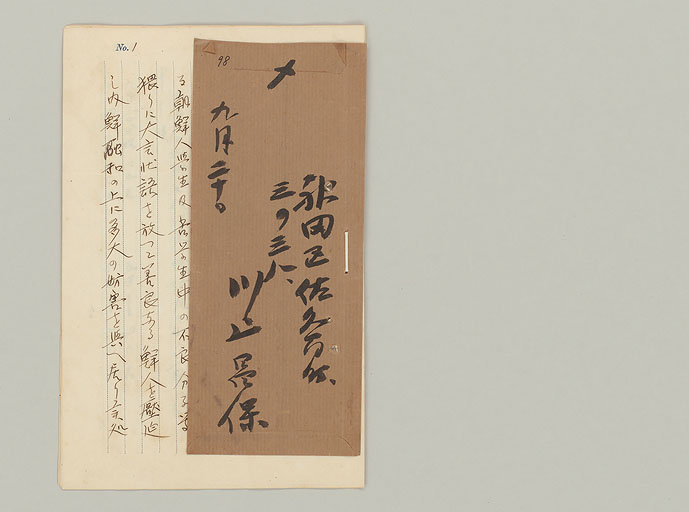 No. 1
98
神田区佐久間町
三ノ三八
川上
保
九月二十日
る朝鮮人学生及
生中の不良分子等
猥りに大言壮語を放つて善良なる鮮人を圧迫
し内鮮融和の上に多大の妨害を与へ居り候処